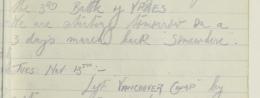 the 3RD Battle of YPRES
We are starting tomorrow on a
3 days march back "somewhere".
Tues Nov 13TH :-
Left VANCOUVER CAMP by